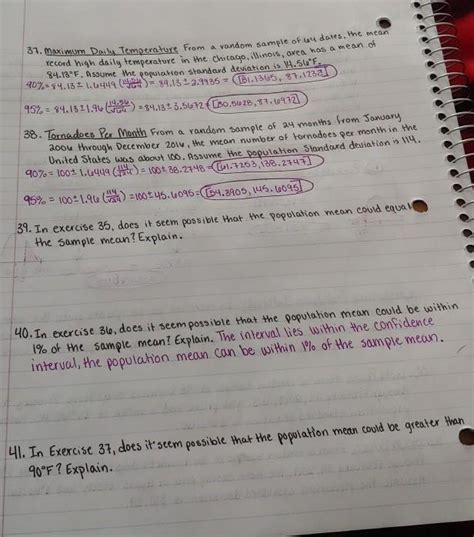 37. Maximum Daily Temperature From a random sample of 64 dates, the mean
record high daily temperature in the Chicago, Illinois, area has a mean of
84.13°F. Assume the population standard deviation is 14.56°F.
90% = 84.13 ± 1.6449 (14.56/√64) = 84.13 ± 2.9935 = [81.1365, 87.1232]
95% = 84.13 ± 1.96 (14.56/√64) = 84.13 ± 3.5672 = [80.5628, 87.6972]
38. Tornadoes Per Month From a random sample of 24 months from January
2006 through December 2016, the mean number of tornadoes per month in the
United States was about 100. Assume the population standard deviation is 114.
90% = 100 ± 1.6449 (114/√24) = 100 ± 38.2748 = [61.7253, 138.2747]
95% = 100 ± 1.96 (114/√24) = 100 ± 45.6095 = [54.3905, 145.6095]
39. In exercise 35, does it seem possible that the population mean could equal
the sample mean? Explain.
40. In exercise 36, does it seem possible that the population mean could be within
1% of the sample mean? Explain. The interval lies within the confidence
interval, the population mean can be within 1% of the sample mean.
41. In Exercise 37, does it seem possible that the population mean could be greater than
90°F? Explain.